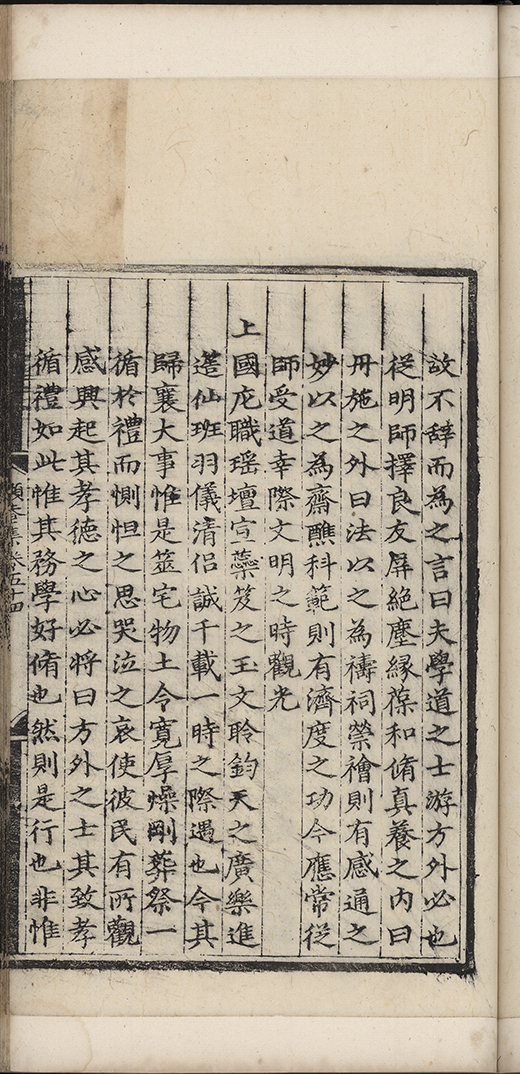 故不辭而為之言曰夫學道之士游方外必也
從明師擇良友屏絕塵緣葆和脩真養之內曰
丹施之外曰法以之為禱祠禜禬則有感通之
妙以之為齋醮科範則有濟度之功今應常從
師受道幸際文明之時觀光
上國庀職瑤壇宣蘂笈之玉文聆鈞天之廣樂進
蓬仙班羽儀清侶誠千載一時之際遇也今其
歸襄大事惟是筮宅物土令寬厚燥剛葬祭一
循於禮而惻怛之思哭泣之哀使彼民有所觀
感興起其孝德之心必將曰方外之士其致孝
循禮如此惟其務學好脩也然則是行也非惟
頤菴集卷五十四